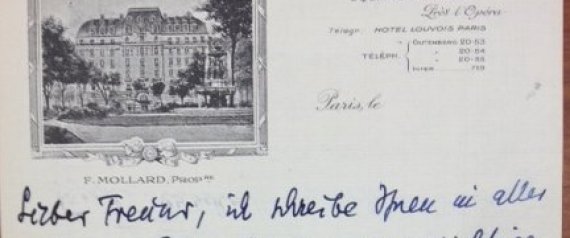 Près l'Opéra
Télégr. HOTEL LOUVOIS PARIS
TÉLÉPH. GUTENBERG 20-53
20-54
20-55
INTER 719
Paris, le
F. MOLLARD, PROPRE
Lieber Freund, ich schreibe Ihnen in aller